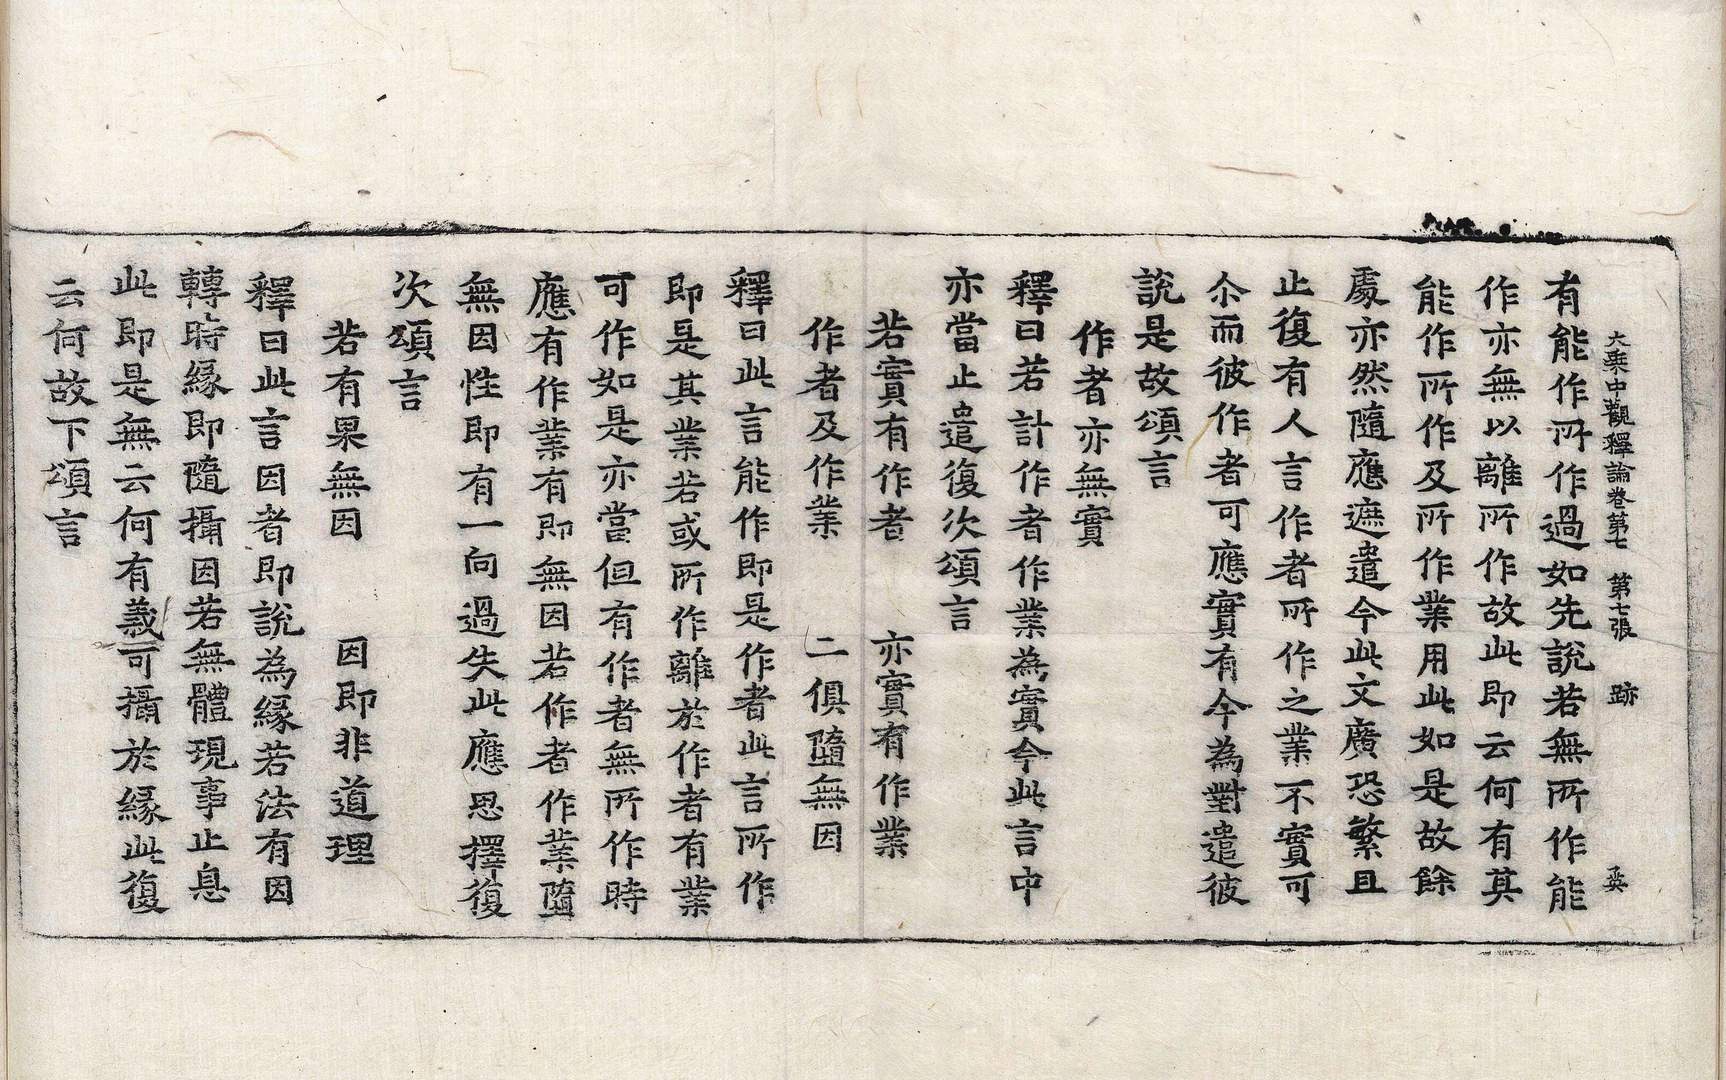 大乗中觀釋論卷第七　第七張　跡
有能作所作過如先說若無所作能
作亦無以離所作故此即云何有其
能作所作及所作業用此如是故餘
處亦然隨應遮遣今此文廣恐繁且
止復有人言作者所作之業不實可
尒而彼作者可應實有今為對遣彼
說是故頌言
作者亦無實
釋曰若計作者作業為實今此言中
亦當止遣復次頌言
若實有作者　亦實有作業
作者及作業　二俱墮無因
釋曰此言能作即是作者此言所作
即是其業若或所作離於作者有業
可作如是亦當但有作者無所作時
應有作業有即無因若作者作業墮
無因性即有一向過失此應思擇復
次頌言
若有果無因　因即非道理
釋曰此言因者即說為緣若法有因
轉時緣即隨攝因若無體現事止息
此即是無云何有義可攝於緣此復
云何故下頌言